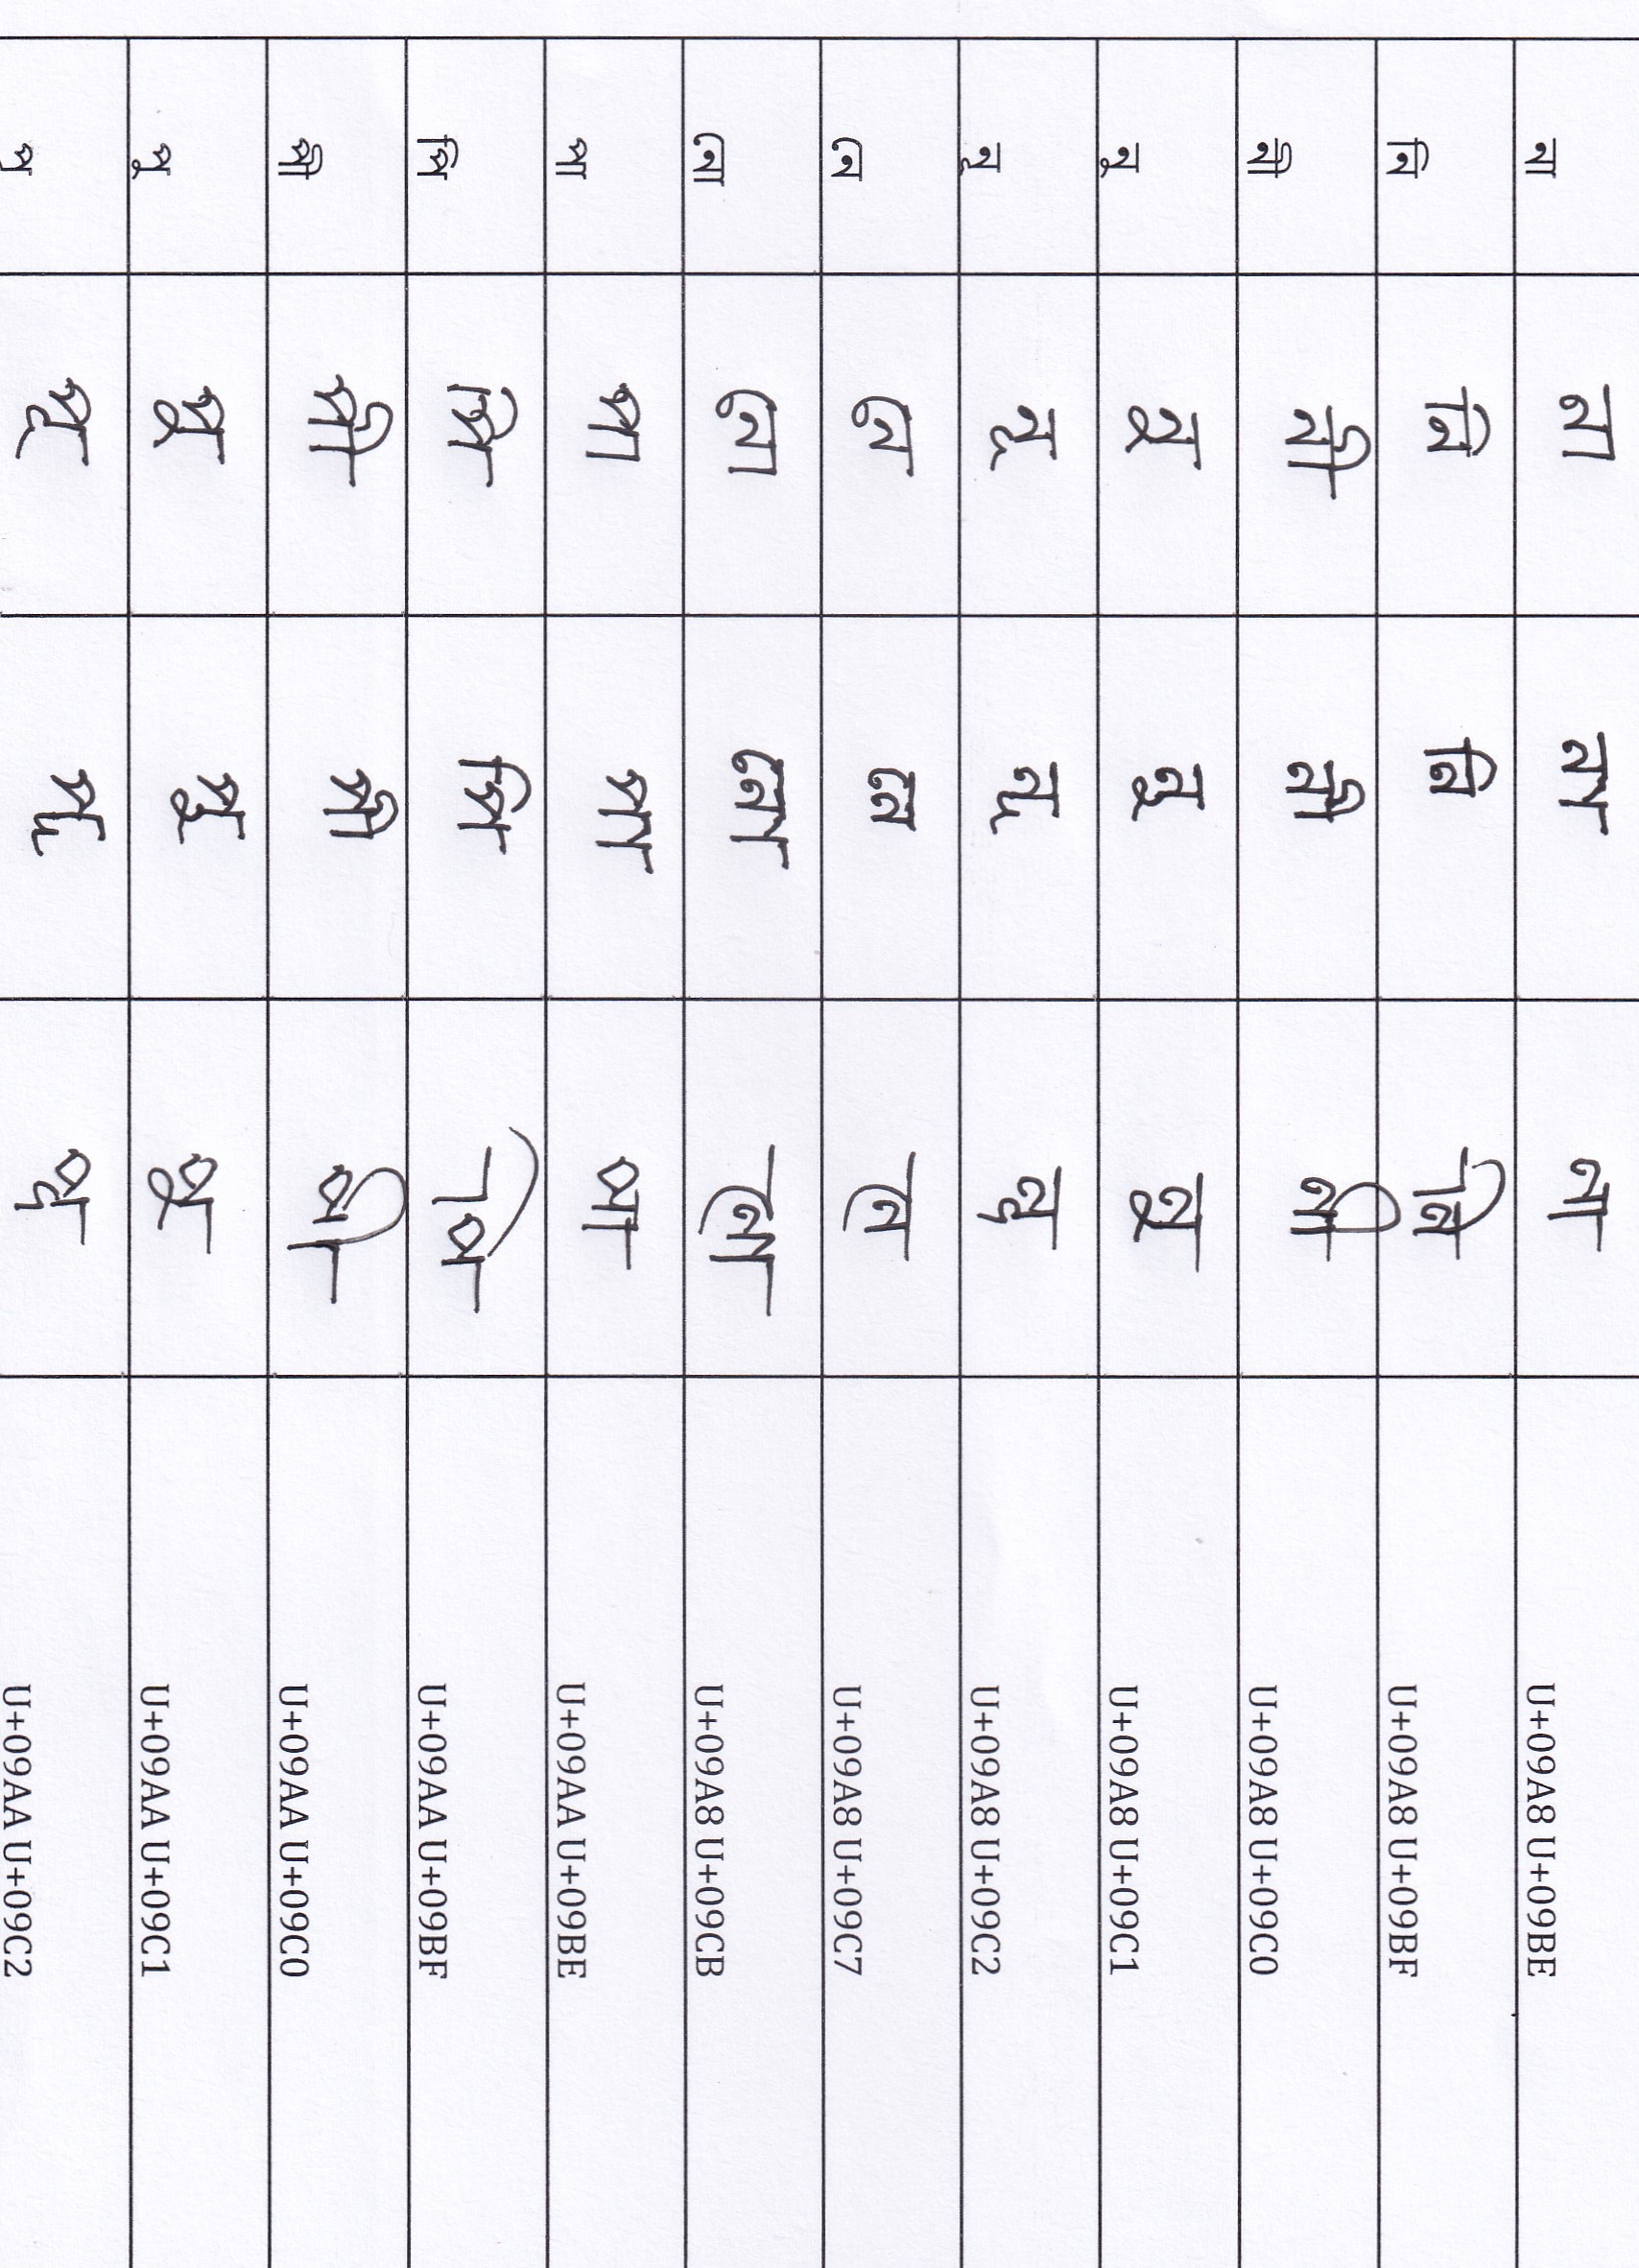 না না না না U+09A8 U+09BE
নি নি নি নি U+09A8 U+09BF
নী নী নী নী U+09A8 U+09C0
নু নু নু নু U+09A8 U+09C1
নূ নূ নূ নূ U+09A8 U+09C2
নে নে নে নে U+09A8 U+09C7
নো নো নো নো U+09A8 U+09CB
পা পা পা পা U+09AA U+09BE
পি পি পি পি U+09AA U+09BF
পী পী পী পী U+09AA U+09C0
পু পু পু পু U+09AA U+09C1
পূ পূ পূ পূ U+09AA U+09C2